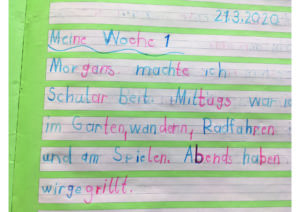 27.3.2020
Meine Woche 1
Morgans machte ich
Schular beit. Mittags war ic
im Garten, wandern, Radfahren
und am Spielen. Abends haben
wir gegrillt.